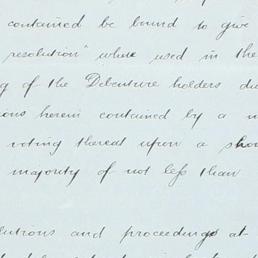 contained be bound to give
resolution" where used in the
g of the Debenture holders du
ions herein contained by a m
voting thereat upon a show
majority of not less than
lutions and proceedings at